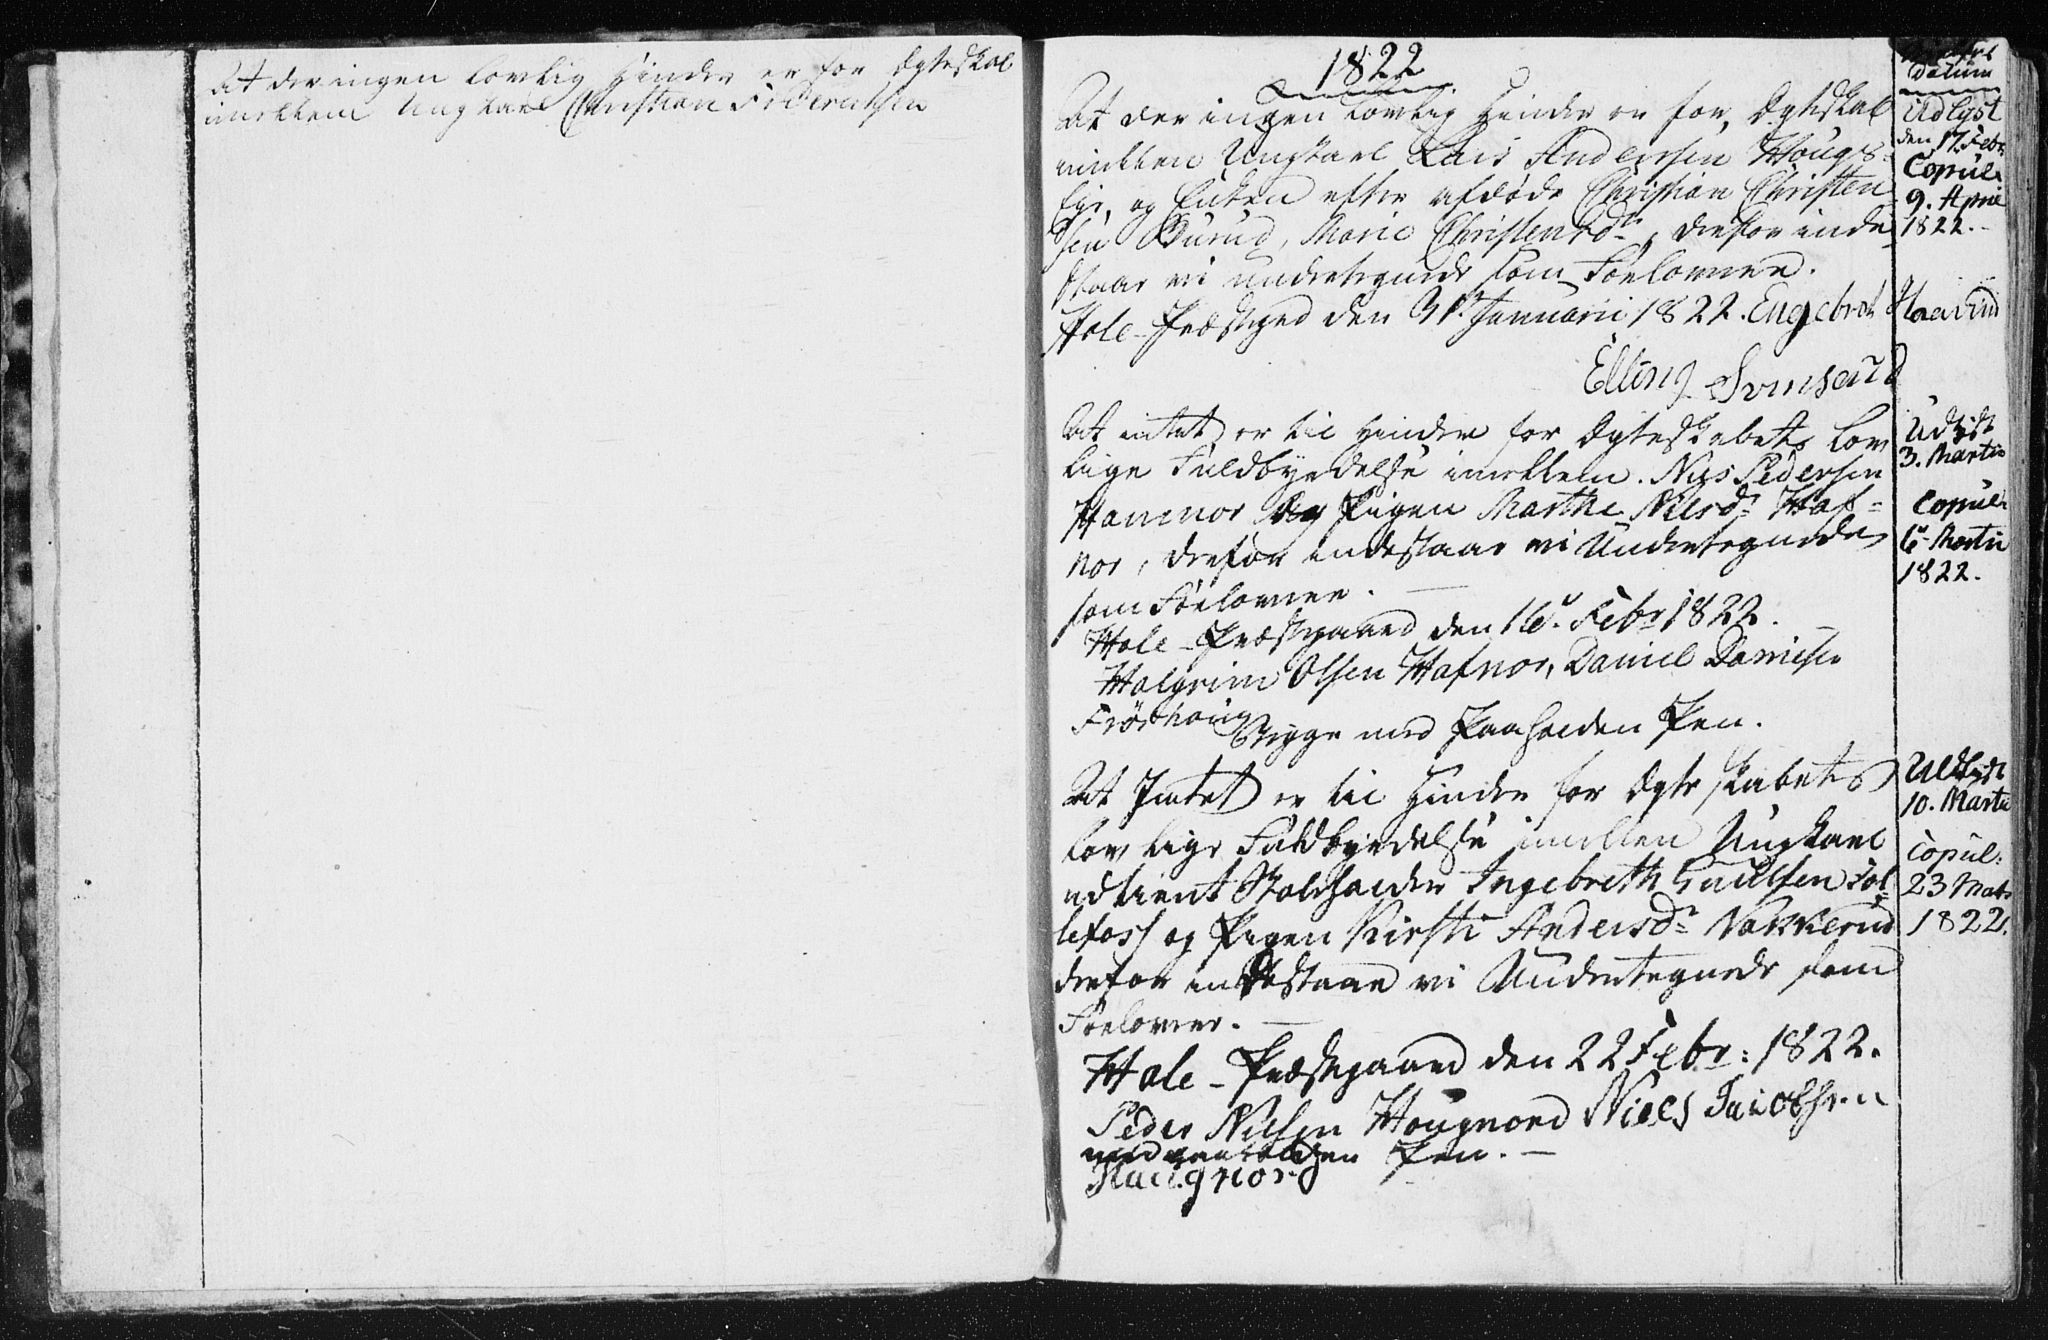 At der ingen lovlig Hinder er for Ægteskab
imellem Ungkarl Christian Friderichsen
1822
At der ingen lovlig Hinder er for Ægteskab
imellem Ungkarl Lars Andersen Hougs-
Eje, og Enken efter afdøde Christian Christen
sen Burud, Marie Christensdr, derfor inde
staar vi undertegnede som Forlovere.
Hole-Præstegrd den 31. Januarii 1822. Engebret Haarum
Elling Svinsrud
datum
Udlyst
den 17. Febr
Copul.
9. April
1822.
At intet er til Hinder for Ægteskabets Lov
lige Fuldbyrdelse imellem Nils Pedersen
Hafnor og Pigen Marthe Nilsdr Haf-
nor, derfor indestaar vi Undertegnede
som Forlovere.
Hole-Præstegaard den 16. Febr 1822.
Halgrim Olsen Hafnor, Daniel Danielsen
Frøshoug
Begge med Paaholden Pen.
Udlyst
3. Martii
Copul.
6. Martii
1822.
At Intet er til Hinder for Ægteskabets
lovlige Fuldbyrdelse imellem Ungkarl
udtient Soldat Ingebreth Gulbsen Fol-
lefoss og Pigen Kirsti Andersdr Vakkerud
derfor indestaar vi Undertegnede som
Forlovere.
Hole-Præstegaard den 22 Febr: 1822.
Peder Nilsen Hougnord Niels Jacobsen
med paaholden Pen.
Haugnor
Udlyst
10. Martii
Copul:
23 Mart
1822.